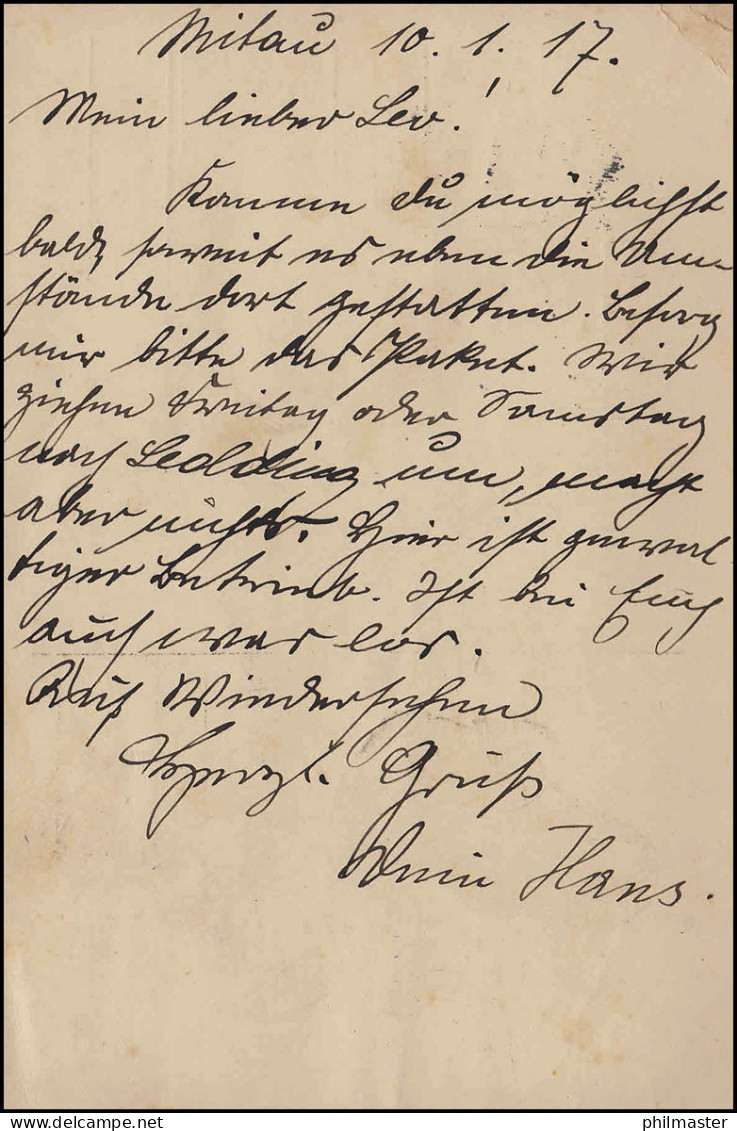 Mitau 10. 1. 17.
Mein lieber Leo!
Komme Du möglichst
bald, soweit es eben die Um-
stände dort gestatten. Besorg
mir bitte das Paket. Wir
ziehen Freitag oder Samstag
nach um, macht
aber nichts. Hier ist gewal-
tiger Betrieb. Ist bei Euch
auch was los.
Auf Wiedersehen
Herzl. Gruß
Dein Hans.
delcampe.net
philmaster